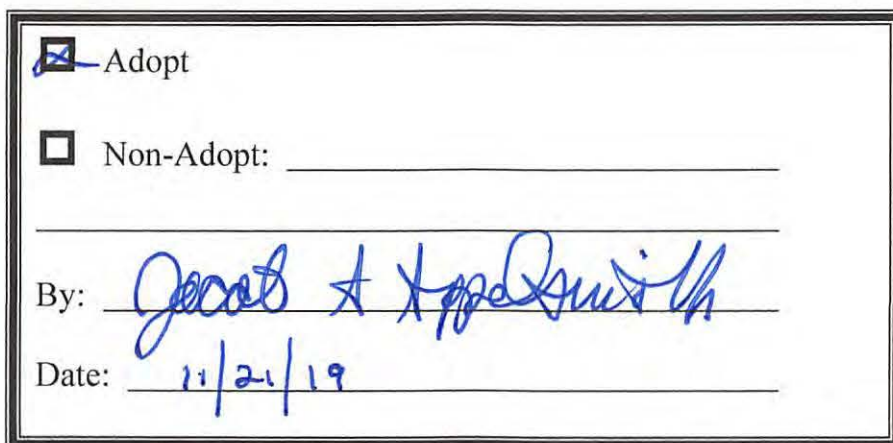 Adopt
Non-Adopt:
By: Jacob A Appelsmith
Date: 11/21/19